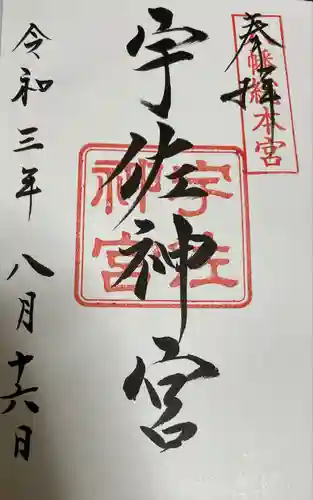 奉拝
八幡総本宮
宇佐神宮
宇佐
神宮
令和三年八月十六日